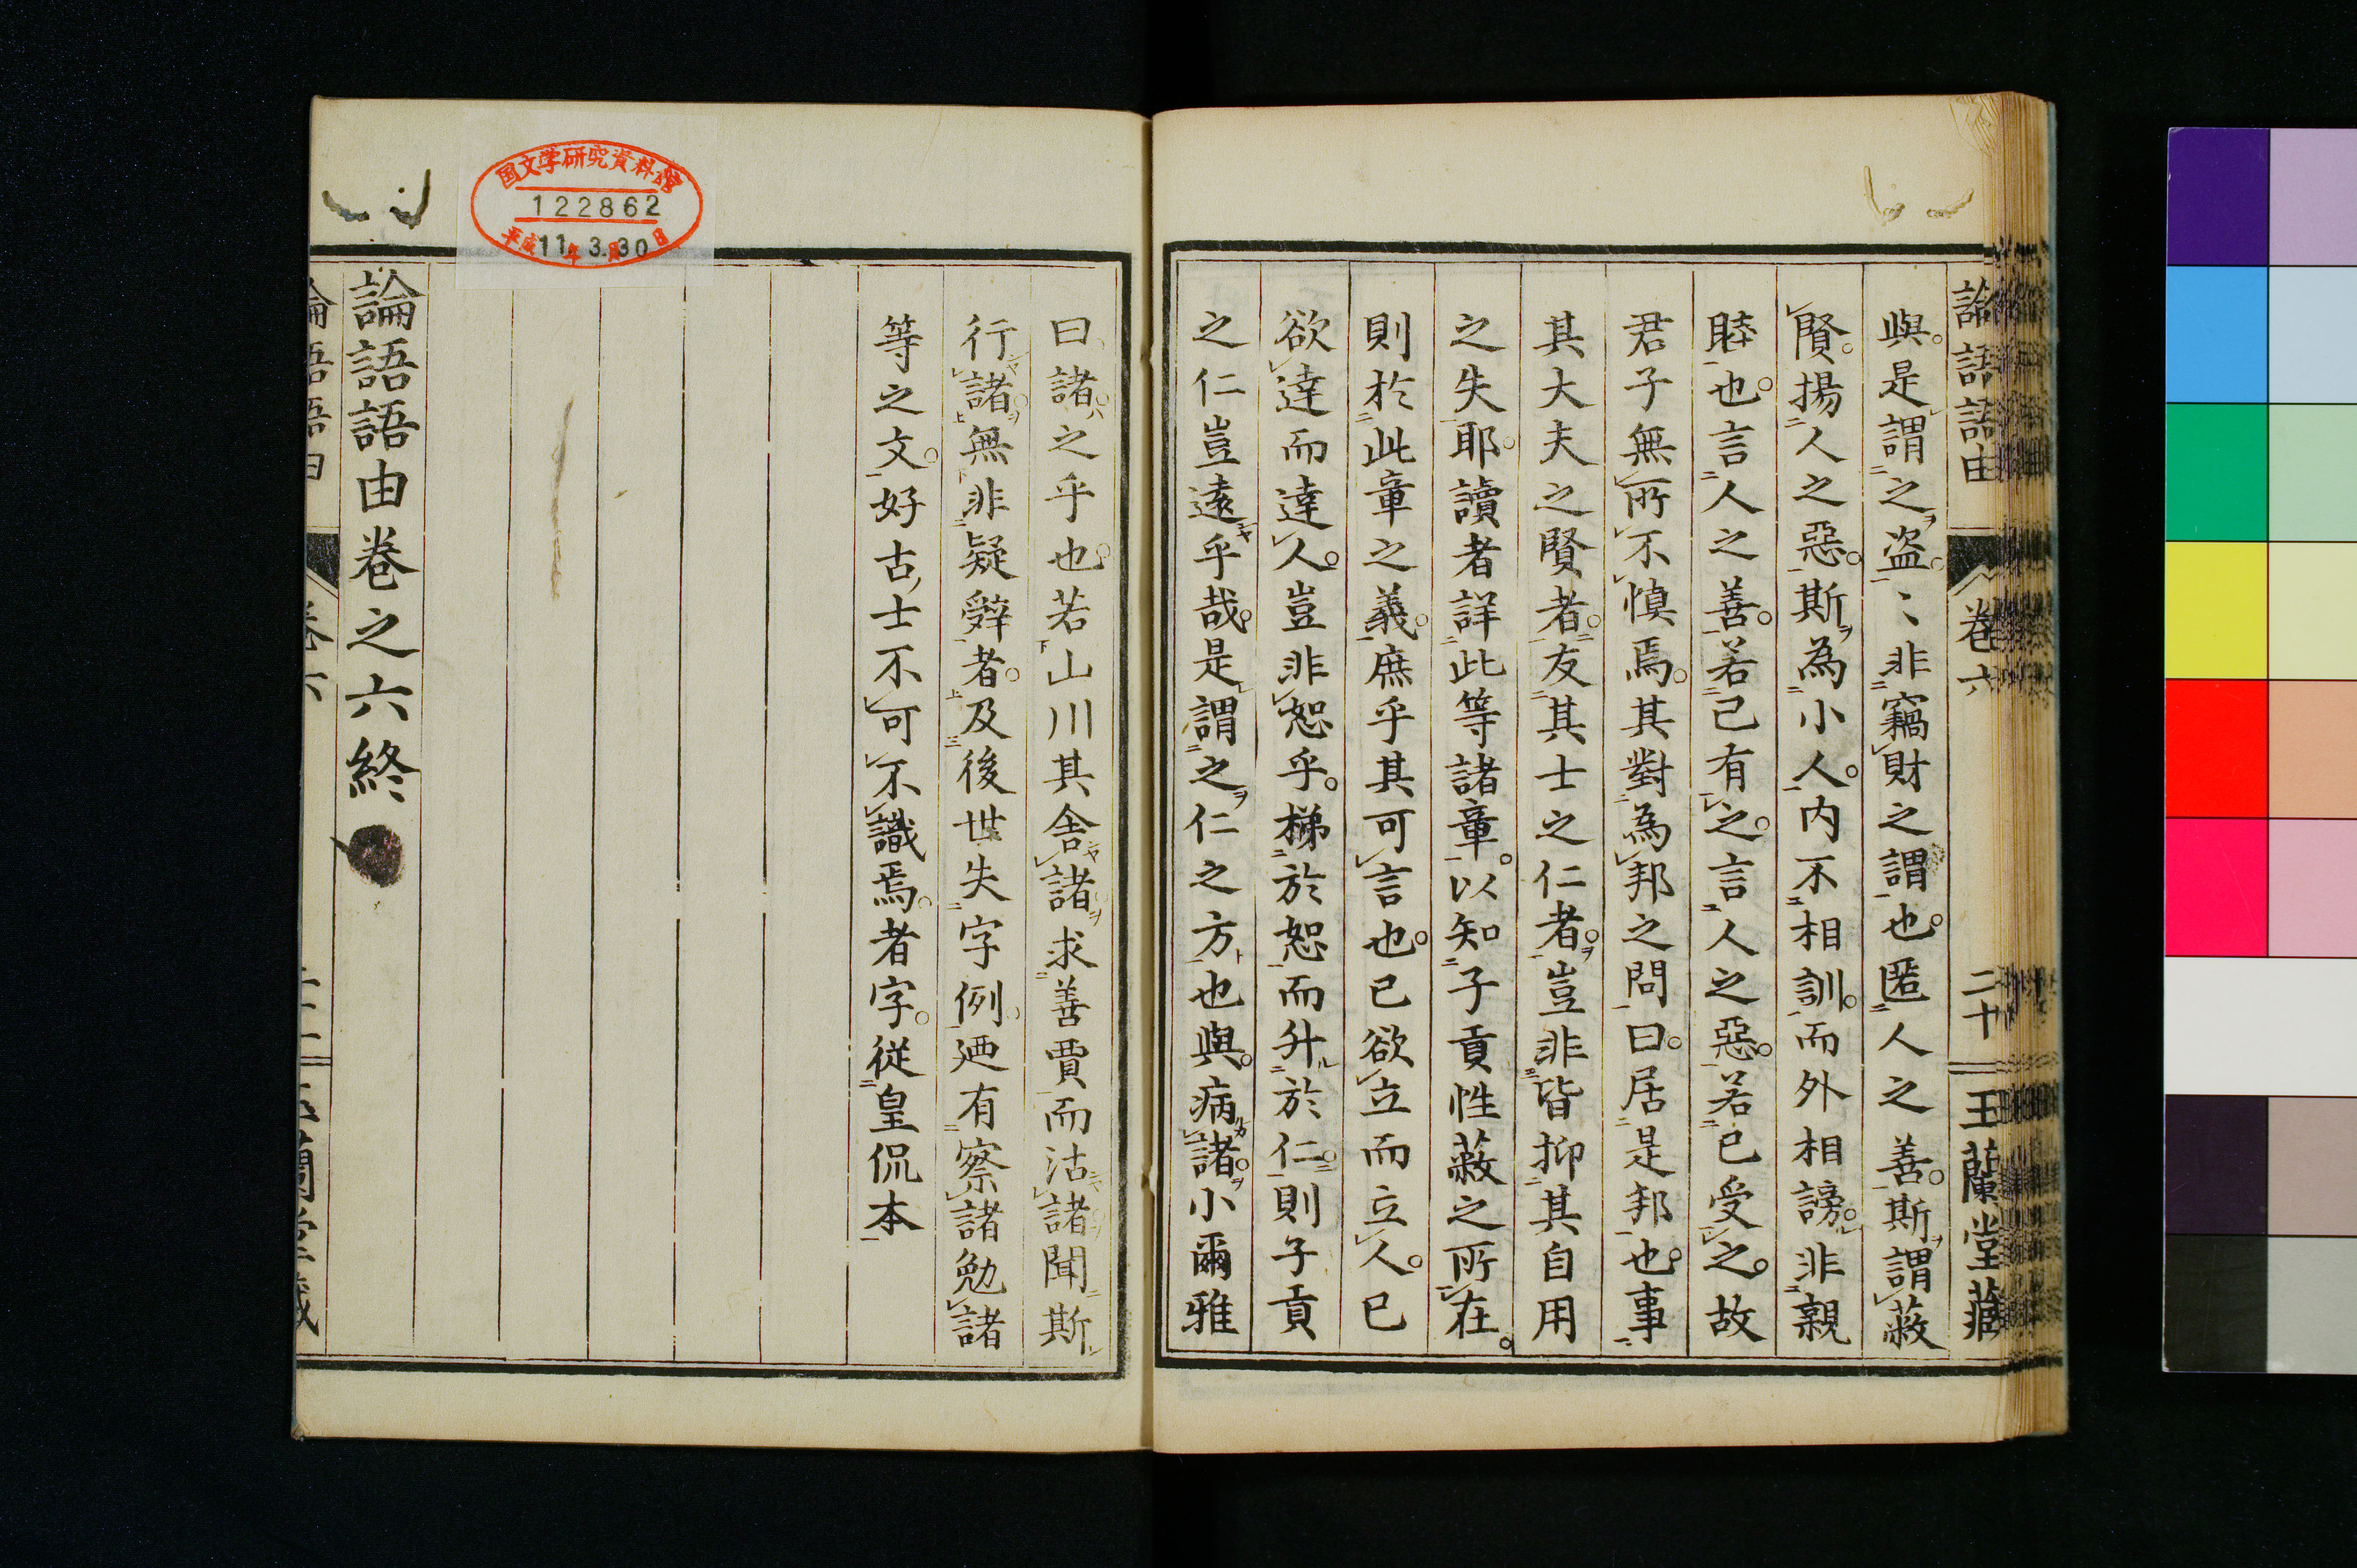 論語語由
卷六
二十
玉蘭堂藏
與。是謂之盗。〻非竊財之謂也。匿人之善。斯謂蔽
賢。揚人之惡。斯為小人。内不相訓。而外相謗。非親
睦也。言人之善。若己有之。言人之惡。若己受之。故
君子無所不慎焉。其對為邦之問。曰。居是邦也。事
其大夫之賢者。友其士之仁者。豈非皆抑其自用
之失耶。讀者詳此等諸章。以知子貢性蔽之所在。
則於此章之義。庶乎其可言也。己欲立而立人。己
欲達而達人。豈非恕乎。梯於恕而升於仁。則子貢
之仁豈遠乎哉。是謂之仁之方也與。病諸。小爾雅
曰諸。之乎也。若山川其舍諸求善賈而沽諸聞斯
行諸。無非疑辤者。及後世失字例。廼有察諸勉諸
等之文。好古士不可不識焉。者字。從皇侃本
論語語由卷之六終
国文学研究資料館
122862
平成11年3.月30日